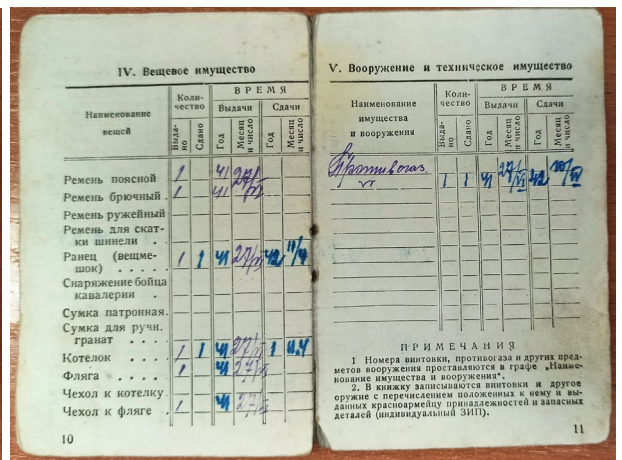 IV. Вещевое имущество
Наименование
вещей
Коли-
чество
ВРЕМЯ
Выдачи
Сдачи
Выда-
но
Сдано
Год
Месяц
и число
Год
Месяц
и число
Ремень поясной 1 41 27/VI
Ремень брючный . 1 41
Ремень ружейный
Ремень для скат-
ки шинели .
Ранец (вещме-
шок) . . . . . 1 1 41 27/VI 42
Снаряжение бойца
кавалерии .
Сумка патронная.
Сумка для ручн.
гранат . . . .
Котелок . . . . 1 1 41 27/VI 1
Фляга . . . . . 1 41 27/VI
Чехол к котелку.
Чехол к фляге . 1 41 27/VI
10
V. Вооружение и техническое имущество
Наименование
имущества
и вооружения
Коли-
чество
ВРЕМЯ
Выдачи
Сдачи
Выда-
но
Сдано
Год
Месяц
и число
Год
Месяц
и число
Противогаз 1 1 41 27/VI 42
ПРИМЕЧАНИЯ
1 Номера винтовки, противогаза и других пред-
метов вооружения проставляются в графе „Наиме-
нование имущества и вооружения".
2. В книжку записываются винтовки и другое
оружие с перечислением положенных к нему и вы-
данных красноармейцу принадлежностей и запасных
деталей (индивидуальный ЗИП).
11